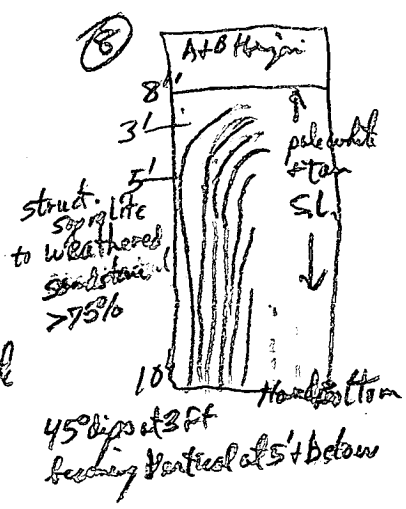 18
A+B Horizon
8"
3'
pale white
+ tan
5'
S.L.
struct.
saprolite
to weathered
sandstone
>75%
10'
Hard Bottom
45° dips at 3 ft
becoming Vertical at 5' + below